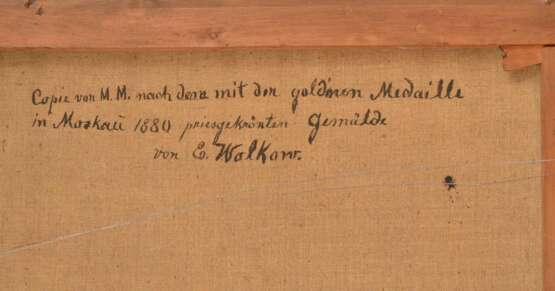 Copie von M. M. nach dem mit der gold'nen Medaille
in Moskaŭ 1880 priesgekrönten Gemälde
von E. Wolkow.